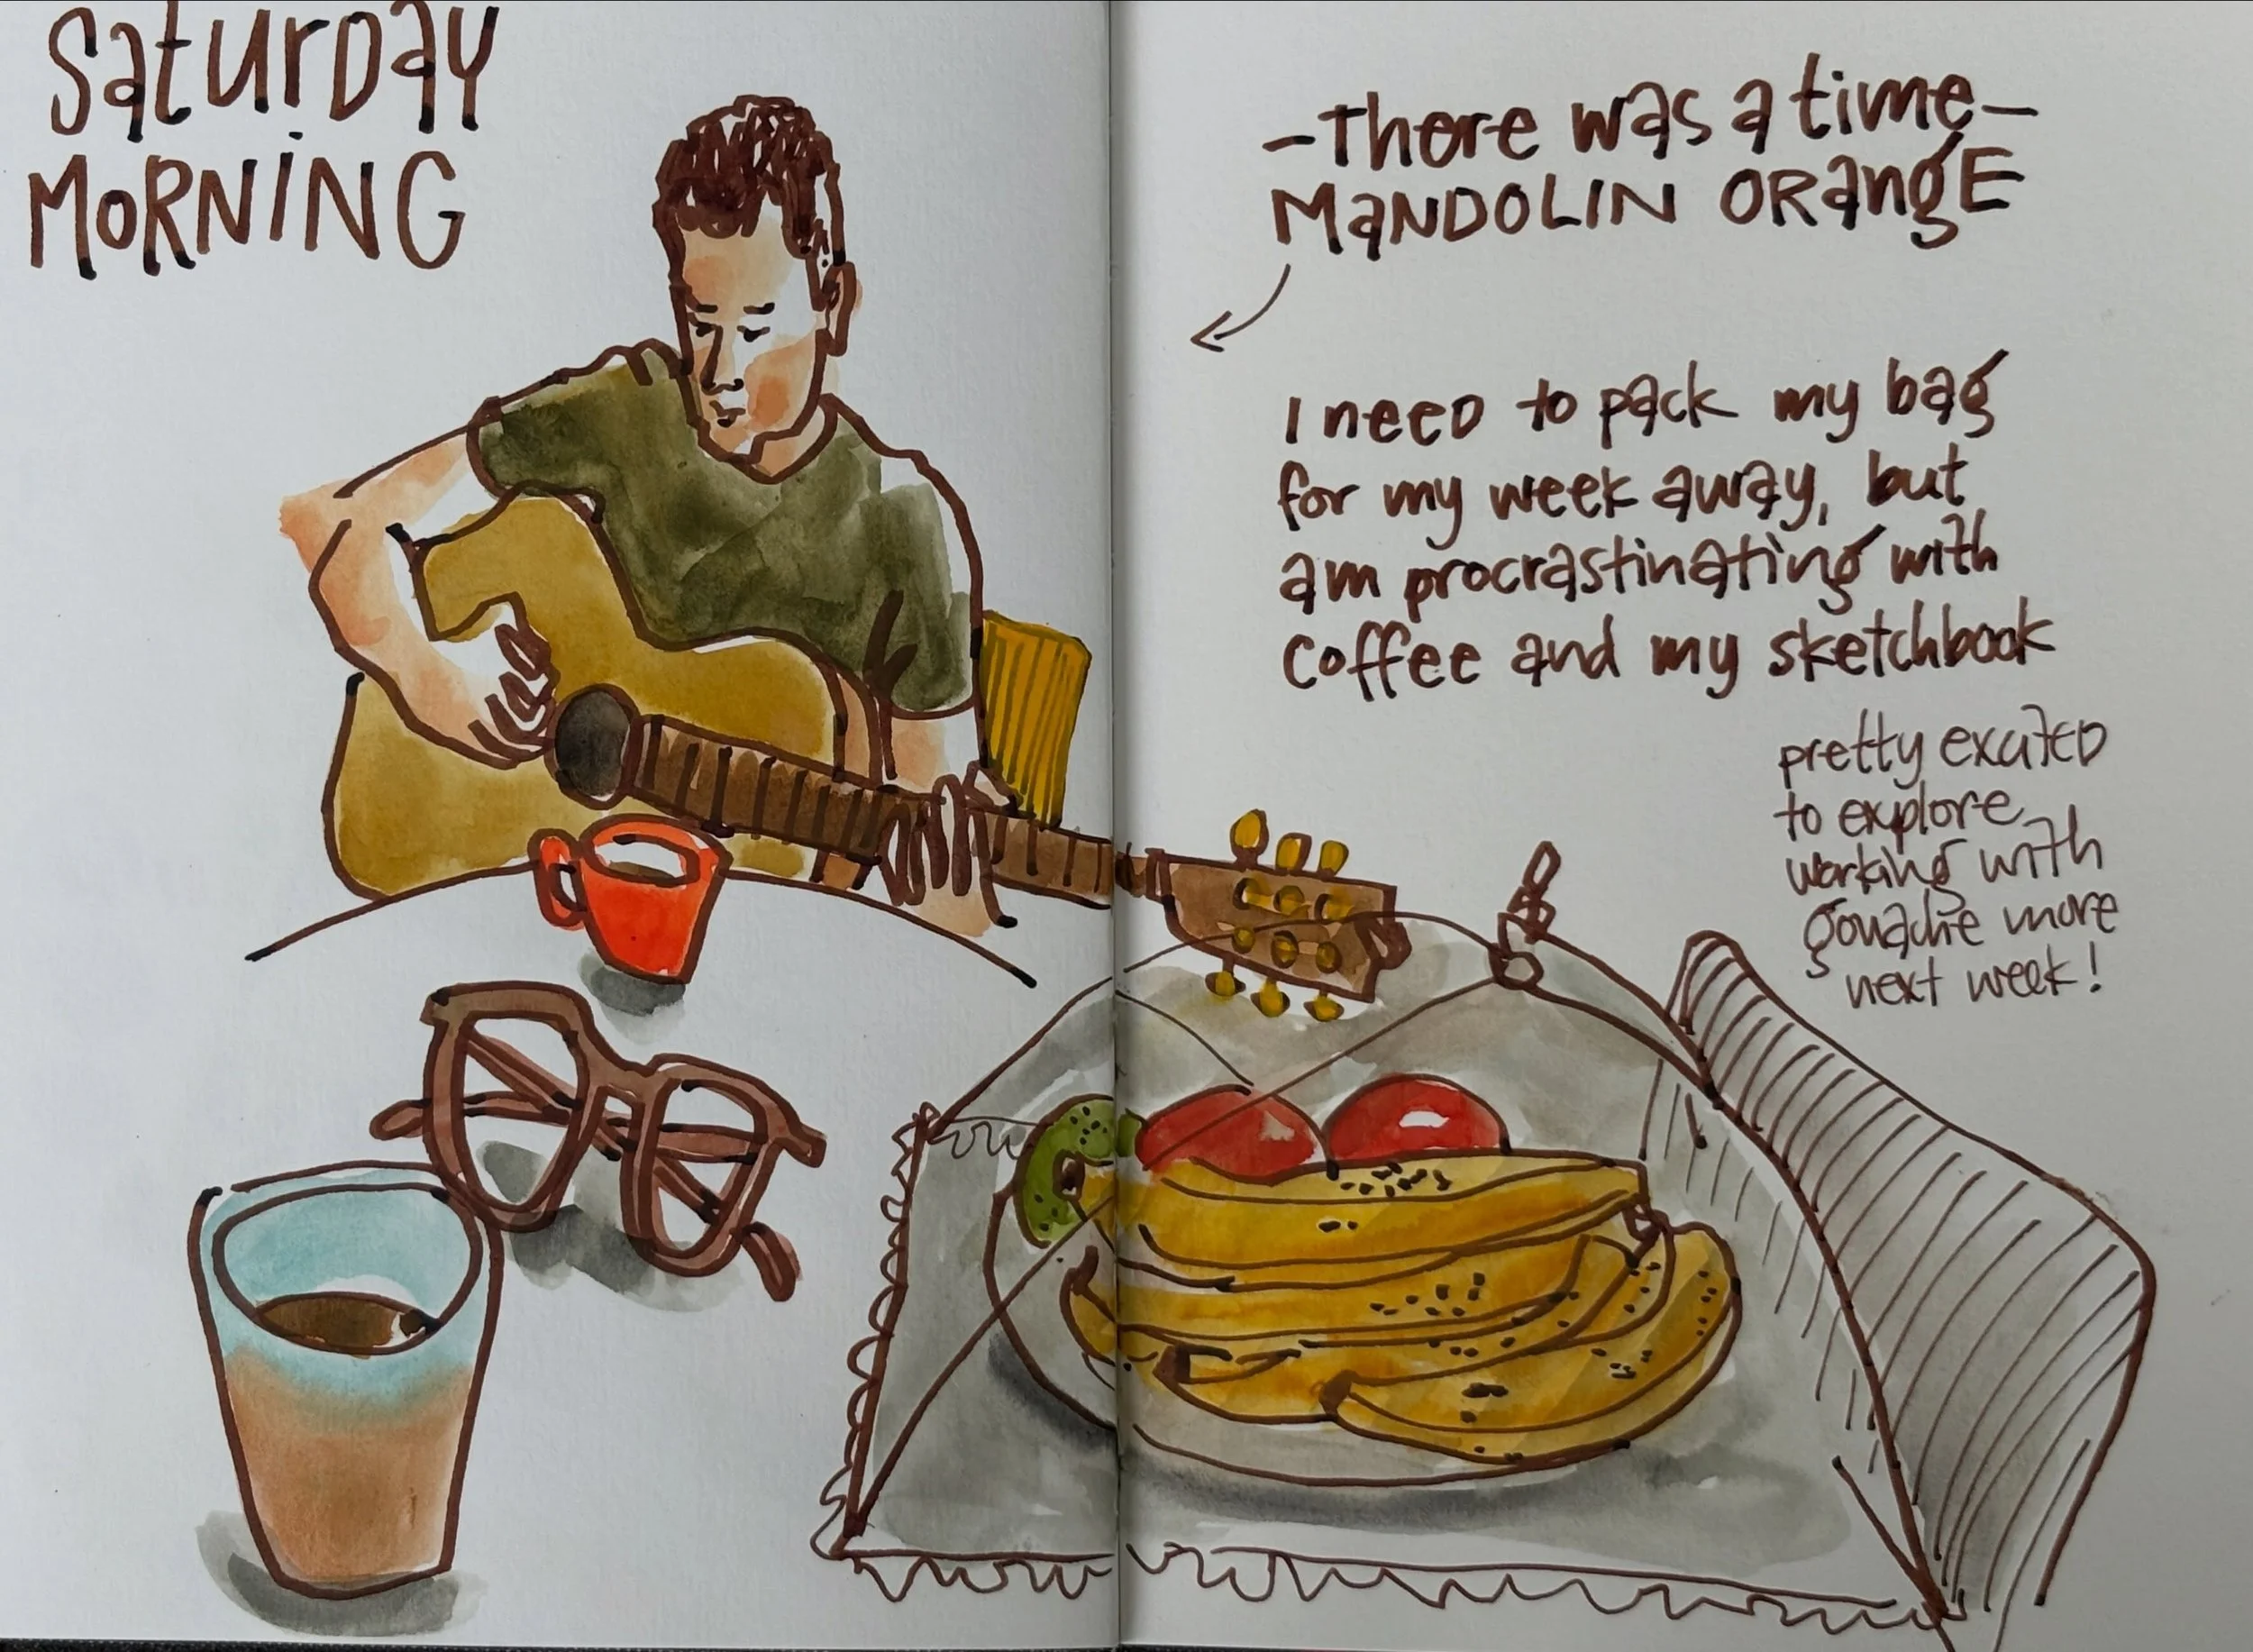 Saturday
MORNING
-There was a time-
MANDOLIN ORANGE
I need to pack my bag
for my week away, but
am procrastinating with
coffee and my sketchbook
pretty excited
to explore
working with
gouache more
next week!